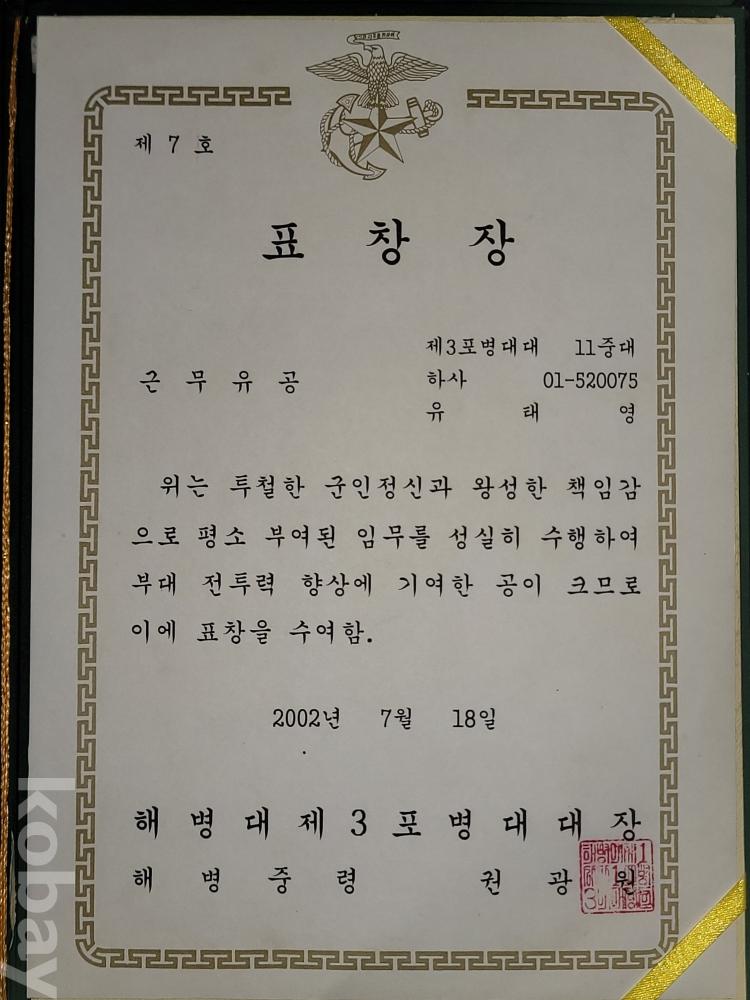 제 7 호
표 창 장
제3포병대대 11중대
근 무 유 공 하사 01-520075
유 태 영
위는 투철한 군인정신과 왕성한 책임감
으로 평소 부여된 임무를 성실히 수행하여
부대 전투력 향상에 기여한 공이 크므로
이에 표창을 수여함.
2002년 7월 18일
해 병 대 제 3 포 병 대 대 장
해 병 중 령 권 광 원
kobay